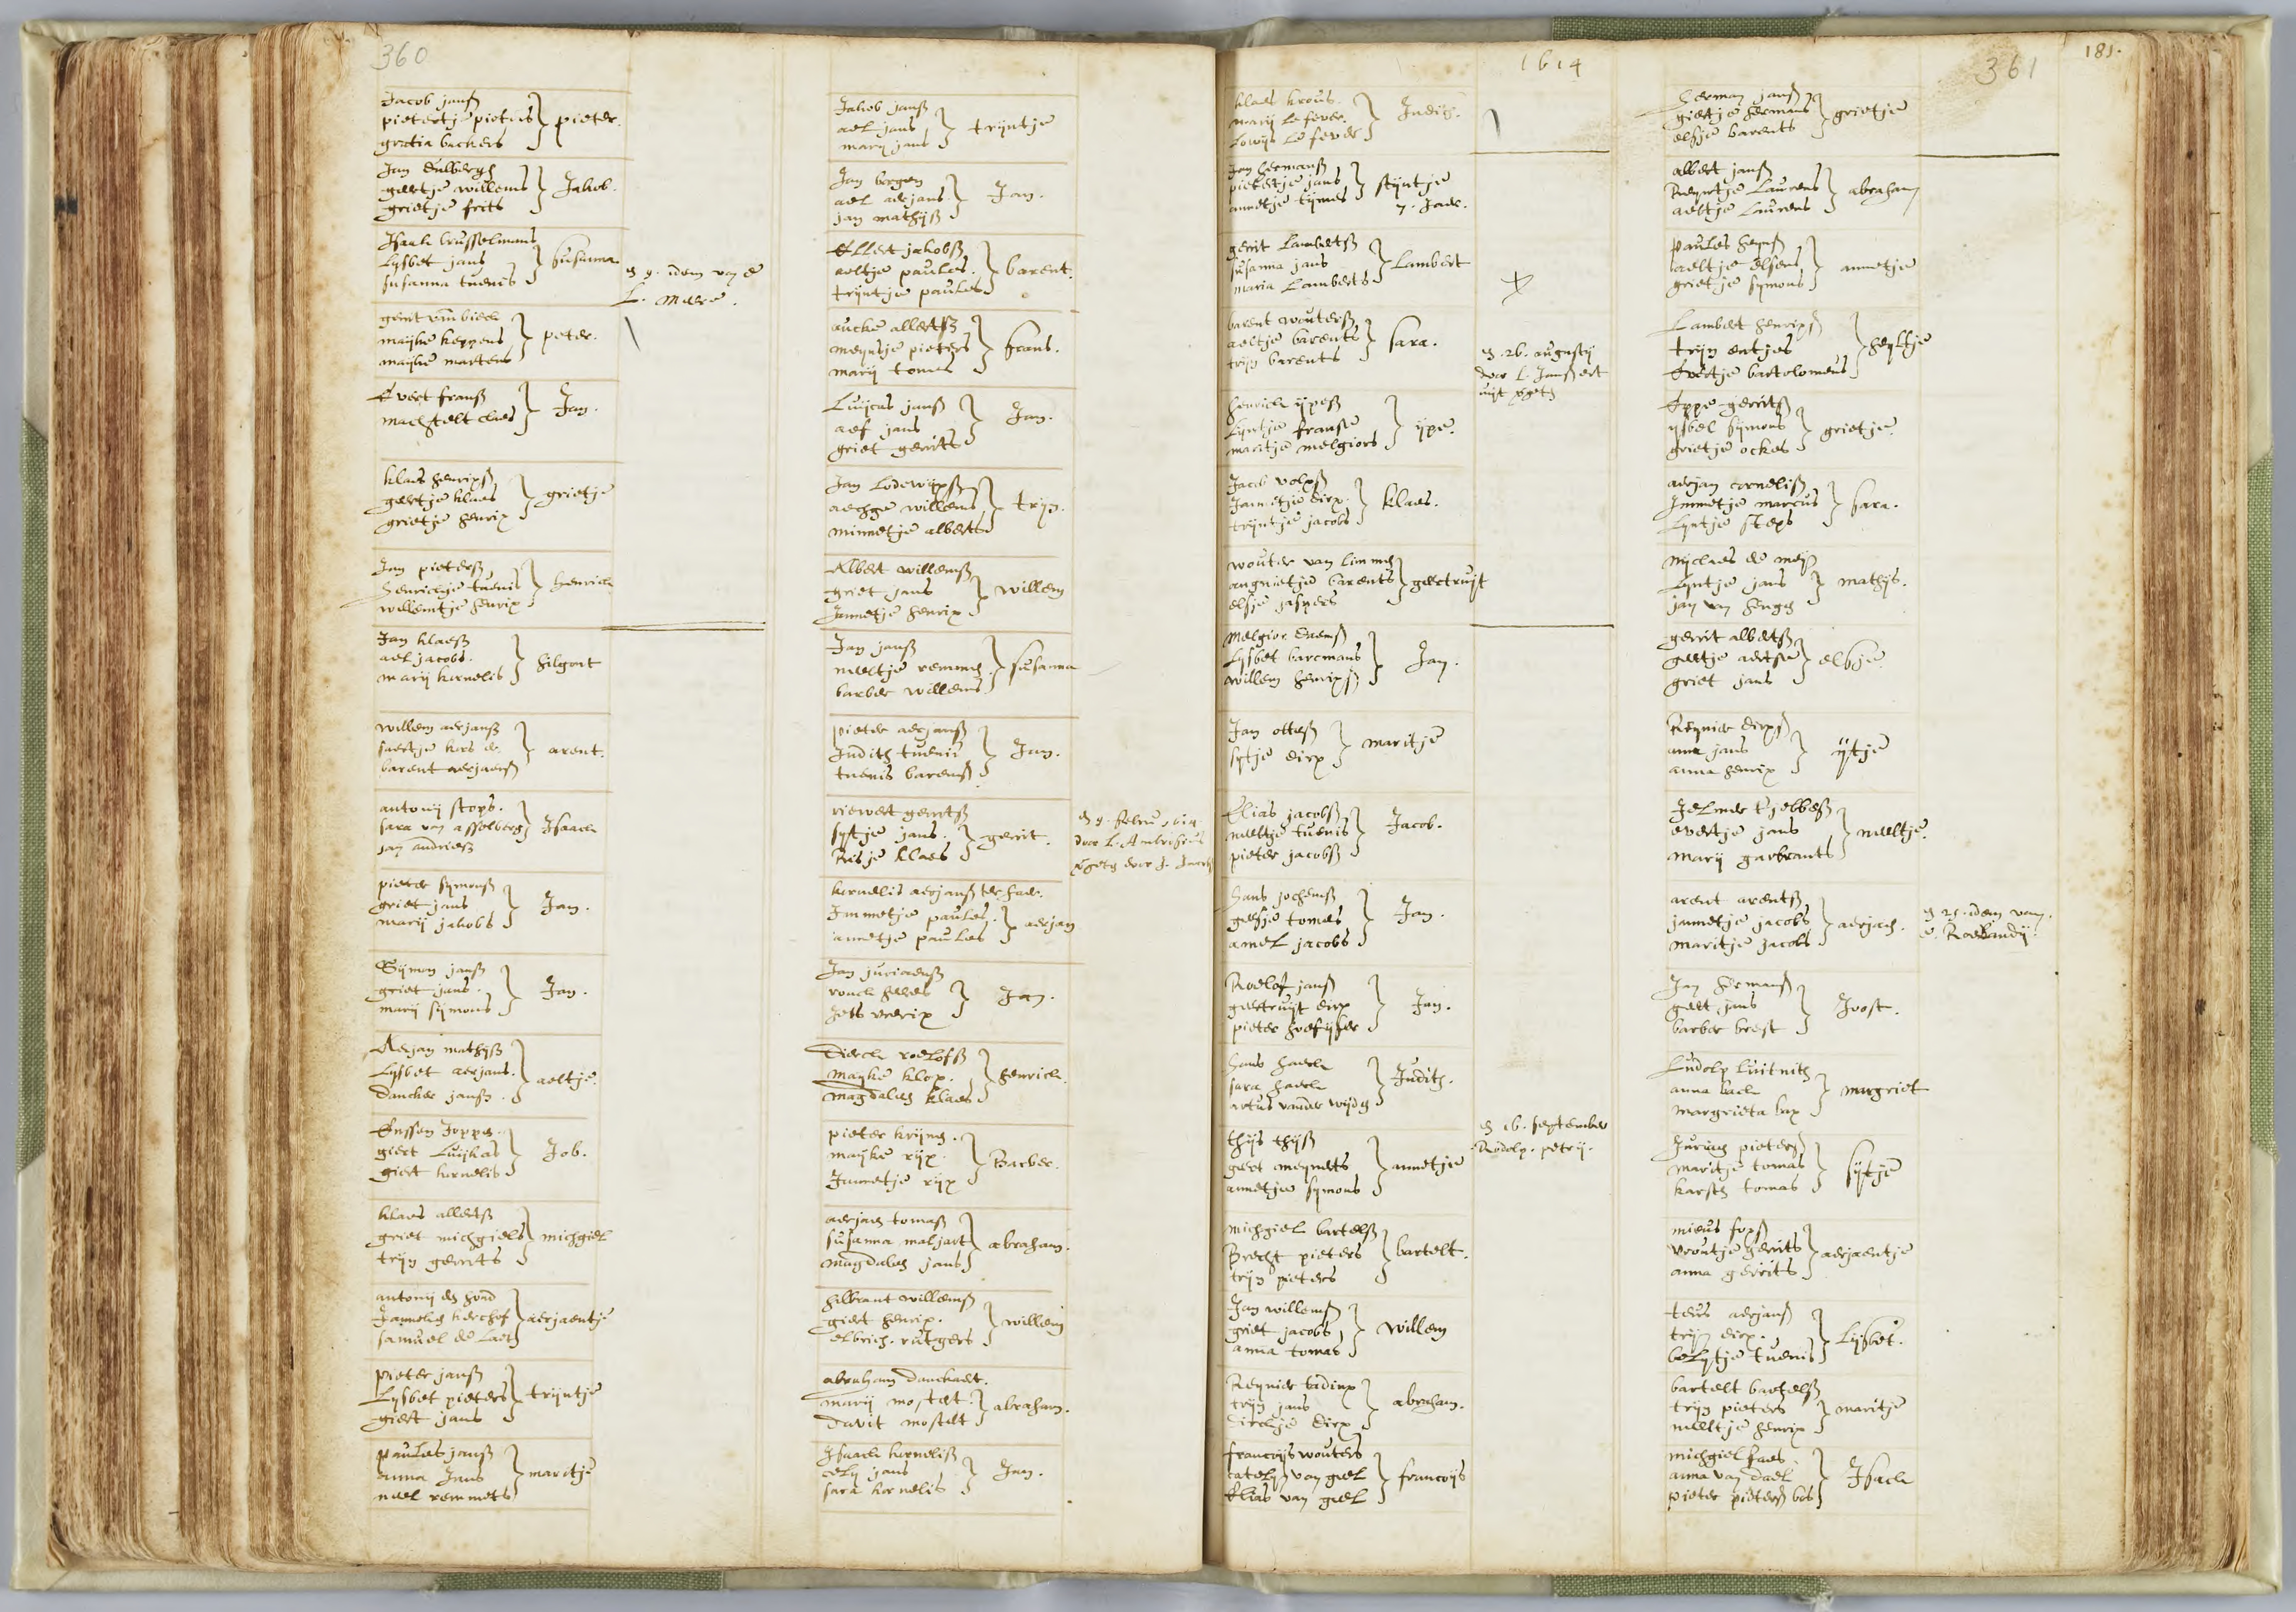 360
Jacob janß
pietertje pieters } pieter.
gratia backers
Jan
geertje willems } Jakob.
grietje frits
Isaack brusselmans
Lysbet jans } susanna
susanna tuenis
9. idem van
L. Mere.
gerrit
mayke keppens } peter.
mayke martens
Evert franß
machtelt claes } Jan.
klaes henrixß
geertje klaes } grietje
grietje henrix
Jan pieterß
henrickje tuenis } henrick
willemtje henrix
Jan klaesß
ael jacobs. } hilgont
marij kornelis
willem aerjanß
saertje } arent.
barent aerjaenß
antonij stops.
sara van asselberg } Isaack
jan andriesß
pieter symonß
griet jans } Jan.
marij jakobs
Symon janß
griet jans. } Jan.
marij symons
Aerjan mathysß
Lysbet aerjans. } aeltje.
dancker janß.
giert Luijkas } Job.
giert kornelis
klaes allertsß
griet michgiels } michgiel
trijn gerrits
antonij de hond
Janneken kerchof } aerjaentje
samuel de Laet
pieter janß
Lysbet pieters } trijntje
giert jans
paulus janß
anna Jans } maritje
neel remmets
Jakob janß
ael jans } trijntje
marij jans
Jan bergen
ael aerjans } Jan.
jan mathysß
Ellert jakobsß
aeltje paules. } barent.
trijntje paules
aucke allertsß
meynsje pieters } frans.
marij tomas
Luijcas janß
aef jans } Jan.
griet gerrits
Jan Lodewijxß
aechge willems } trijn.
minnetje alberts
Albert willemsß
griet jans } willem
Jannetje henrix
Jan janß
neeltje remmes } susanna
barber willems
pieter aerjanß
Judith tuenis } Jan.
tuenis barenß
riewert gerritsß
sytje jans. } gerrit.
Risje klaes
9. febru 1614
door L. Ambrosius
kornelis aerjanß
Jannetje paules. } aerjan
annetje paules
Jan juriaenß
} Jan.
Dierck roelofsß
mayke klop. } henrick.
magdalen klaes
pieter krijns.
mayke rijx. } Barber.
Jannetje rijx
aerjan tomasß
susanna maljart } abraham.
magdalen jans
hilbrant willemsß
giert henrix. } willem
elbrich. rutgers
abraham danckaert.
marij mostert. } abraham.
davit mostert
Isaack kornelisß
jans } Jan.
sara kornelis
1614
klaes krous.
marij Le fever. } Judith.
Lowijs Le fever
Jan hermanß
pietertje jans } stijntje
annetje tijmes
gerrit Lambertsß
susanna jans } Lambert
maria Lamberts
barent woutersß
aeltje barents } sara.
trijn barents
26. augustij
door L.
henrick ijpesß
Lyntje franse } ijpe.
maritje melgiors
Jacob volxß
Jannetje dirx. } klaes.
trijntje jacobs
wouter van Limmen
angnietje barents } geertruijt
elsje jaspers
melgior daemß
Lysbet barcmans } Jan.
willem henrixß
Jan ottesß
sytje dirx } maritje
Elias jacobsß
neeltje tuenis } Jacob.
pieter jacobsß
hans jochemsß
geesje tomas } Jan.
amel jacobs
Roelof janß
geertruijt dirx } Jan.
pieter hoefijser
hans haeck
sara haeck } Judith.
artus vander wijden
16. september
Rodolp. petrij.
thijs thijsß
geert meynerts } annetje
annetje symons
michgiel bartelsß
Brecht pieters } bartelt.
trijn pieters
Jan willemsß
griet jacobs } willem
anna tomas
Reynier
trijn jans } abraham.
dirckje dirx
francoijs wouters
catelyn van giel } francoijs
Elias van giel
361
181.
Herman janß
gietje hermans } grietje
elsje barents
albert janß
Reynetje Laurens } abraham
aeltje Laurens
paules heynß
aeltje elsens } annetje
grietje symons
Lambert henrixß
trijn entjes } heyltje
Evertje bartolomeus
Eppe gerritsß
ijsbel symons } grietje.
grietje ockes
aerjan cornelisß
Immetje marcus } sara.
Lyntje steps
nijclaes de meij
Lyntje jans } mathijs.
jan van
gerrit albertsß
geertje aertse } elsje
griet jans
Reynier dirxß
anna jans } ijtje
anna henrix
Jelmer tjebbesß
evertje jans } neeltje.
marij garbrants
arent arentsß
jannetje jacobs } aerjaen.
maritje jacobs
25. idem van.
Jan hermanß
geert jans } Joost.
barber brest
Ludolp
anna back } margriet
margrieta bax
Juriaen pietersß
maritje tomas } sijtje
karsten tomas
mieus fopsß
vroutje gerrits } aerjaentje
anna gerrits
teus aerjanß
trijn dirx. } Lijsbet.
belytje tuenis
bartelt bartelsß
trijn pieters } maritje
neeltje henrix
michgiel faes.
anna van dael } Isack
pieter pietersß bos